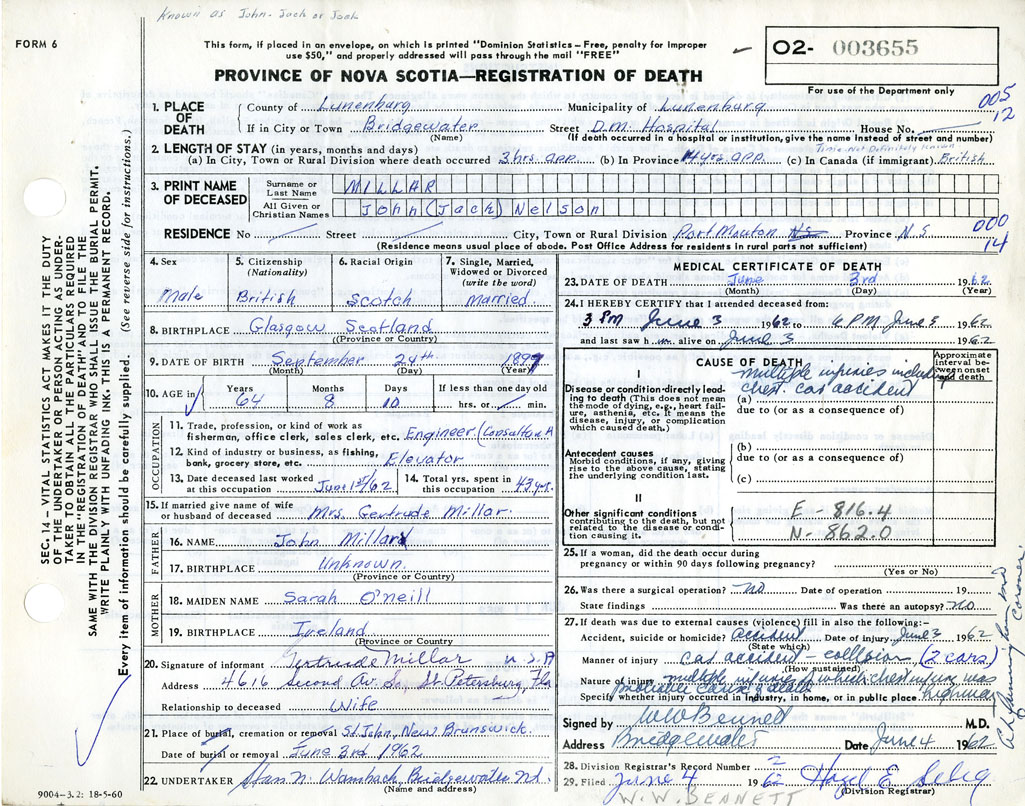 Known as John. Jack or Jock
FORM 6
This form, if placed in an envelope, on which is printed "Dominion Statistics – Free, penalty for improper
use $50," and properly addressed will pass through the mail "FREE"
O2- 003655
For use of the Department only
PROVINCE OF NOVA SCOTIA—REGISTRATION OF DEATH
005
12
1. PLACE OF DEATH
County of Lunenburg Municipality of Lunenburg
If in City or Town Bridgewater Street D.M. Hospital House No.
(Name) (If death occurred in a hospital or institution, give the name instead of street and number)
2. LENGTH OF STAY (in years, months and days) Time Not Definitely Known
(a) In City, Town or Rural Division where death occurred 3 hrs. app. (b) In Province 14 yrs. app. (c) In Canada (if immigrant) British
3. PRINT NAME OF DECEASED
Surname or Last Name MILLAR
All Given or Christian Names John (Jack) Nelson
000
14
RESIDENCE No Street City, Town or Rural Division Port Mouton NS Province N.S
(Residence means usual place of abode. Post Office Address for residents in rural parts not sufficient)
4. Sex
Male
5. Citizenship
(Nationality)
British
6. Racial Origin
Scotch
7. Single, Married, Widowed or Divorced
(write the word)
Married.
8. BIRTHPLACE Glasgow Scotland
(Province or Country)
9. DATE OF BIRTH September 24th 1897
(Month) (Day) (Year)
10. AGE in Years 64 Months 8 Days 10 If less than one day old
hrs. or min.
OCCUPATION
11. Trade, profession, or kind of work as
fisherman, office clerk, sales clerk, etc. Engineer (Consultan
12. Kind of industry or business, as fishing,
bank, grocery store, etc. Elevator
13. Date deceased last worked
at this occupation June 1st/62
14. Total yrs. spent in
this occupation 43 yrs.
15. If married give name of wife
or husband of deceased Mrs. Gertrude Millar.
FATHER
16. NAME John Millar
17. BIRTHPLACE Unknown.
(Province or Country)
MOTHER
18. MAIDEN NAME Sarah O'neill
19. BIRTHPLACE Ireland
(Province or Country)
20. Signature of informant Gertrude Millar U.S.A
Address 4616 Second Av. So, St. Petersburg, Fla
Relationship to deceased Wife
21. Place of burial, cremation or removal St. John, New Brunswick.
Date of burial or removal June 3rd 1962
22. UNDERTAKER Stan N. Wambach, Bridgewater, N.S.
(Name and address)
9004–3.2: 18-5-60
SEC. 14 – VITAL STATISTICS ACT MAKES IT THE DUTY
OF THE UNDERTAKER OR PERSON ACTING AS UNDER-
TAKER TO OBTAIN ALL THE PARTICULARS REQUIRED
IN THE "REGISTRATION OF DEATH" AND TO FILE THE
SAME WITH THE DIVISION REGISTRAR WHO SHALL ISSUE THE BURIAL PERMIT.
WRITE PLAINLY WITH UNFADING INK. THIS IS A PERMANENT RECORD.
Every item of information should be carefully supplied. (See reverse side for instructions.)
MEDICAL CERTIFICATE OF DEATH
23. DATE OF DEATH June 3rd 1962
(Month) (Day) (Year)
24. I HEREBY CERTIFY that I attended deceased from:
3 PM June 3 1962 to 6 PM June 3 1962
and last saw h m alive on June 3 1962
CAUSE OF DEATH
Approximate interval between onset and death
I
Disease or condition directly leading to death (This does not mean the mode of dying, e.g., heart failure, asthenia, etc. It means the disease, injury, or complication which caused death.)
multiple injuries including
(a) chest. car accident
due to (or as a consequence of)
Antecedent causes
Morbid conditions, if any, giving rise to the above cause, stating the underlying condition last.
(b)
due to (or as a consequence of)
(c)
II
Other significant conditions
contributing to the death, but not related to the disease or condition causing it.
E - 816.4
N - 862.0
25. If a woman, did the death occur during
pregnancy or within 90 days following pregnancy?
(Yes or No)
26. Was there a surgical operation? no Date of operation 19
State findings Was there an autopsy? no
27. If death was due to external causes (violence) fill in also the following:–
Accident, suicide or homicide? accident Date of injury June 3 1962
(State which)
Manner of injury car accident - collision (2 cars)
(How sustained)
Nature of injury multiple injuries of which chest injury was
probable cause of death
Specify whether injury occurred in industry, in home, or in public place. highway
Signed by W W Bennett M.D.
Address Bridgewater Date June 4 1962
Coroner
28. Division Registrar's Record Number 2
29. Filed June 4 1962 Hazel E.
(Division Registrar)
W. W. BENNETT